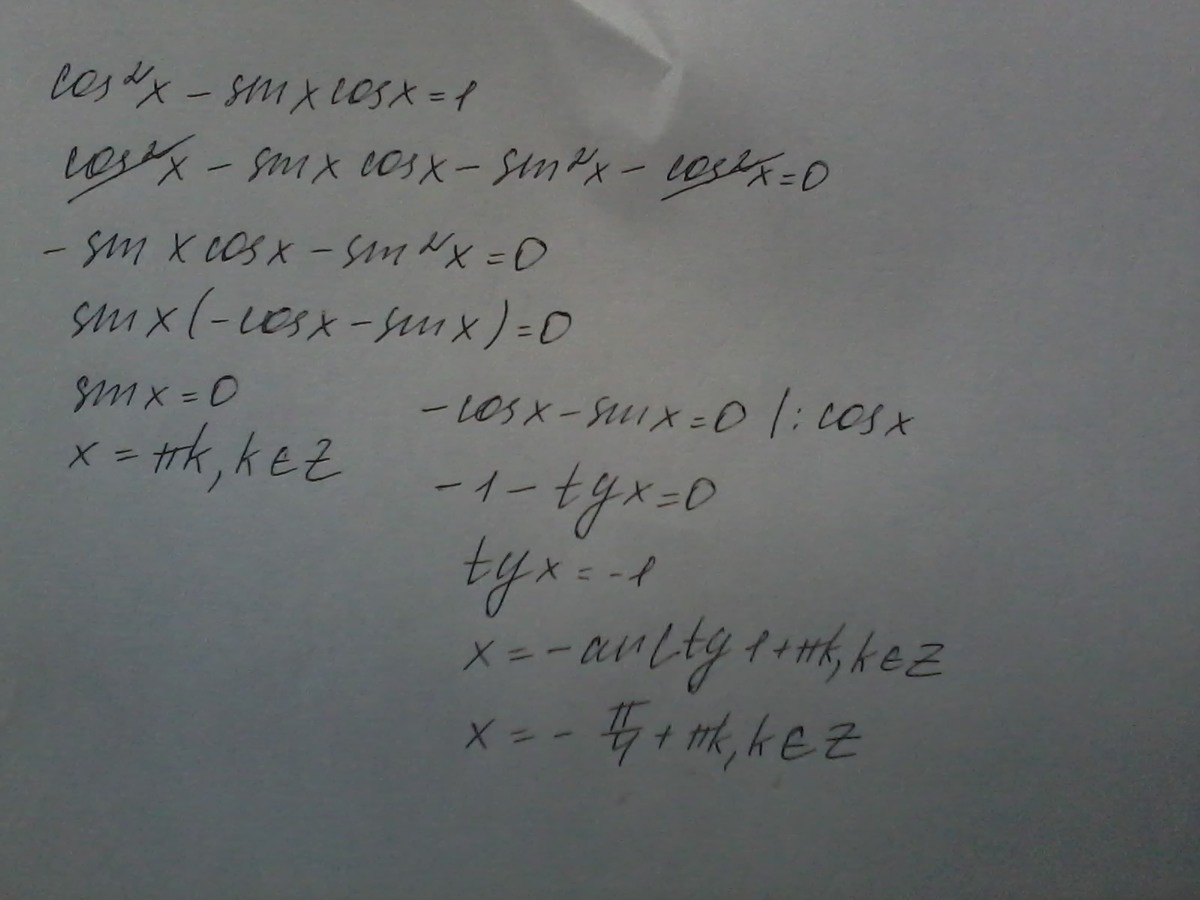 cos²x - sinx cosx = 1
cos²x - sinx cosx - sin²x - cos²x = 0
- sin x cosx - sin²x = 0
sin x (-cosx - sinx) = 0
sin x = 0
x = πk, k ∈ Z
-cosx - sinx = 0 |: cosx
-1 - tgx = 0
tgx = -1
x = -arctg 1 + πk, k ∈ Z
x = - π/4 + πk, k ∈ Z